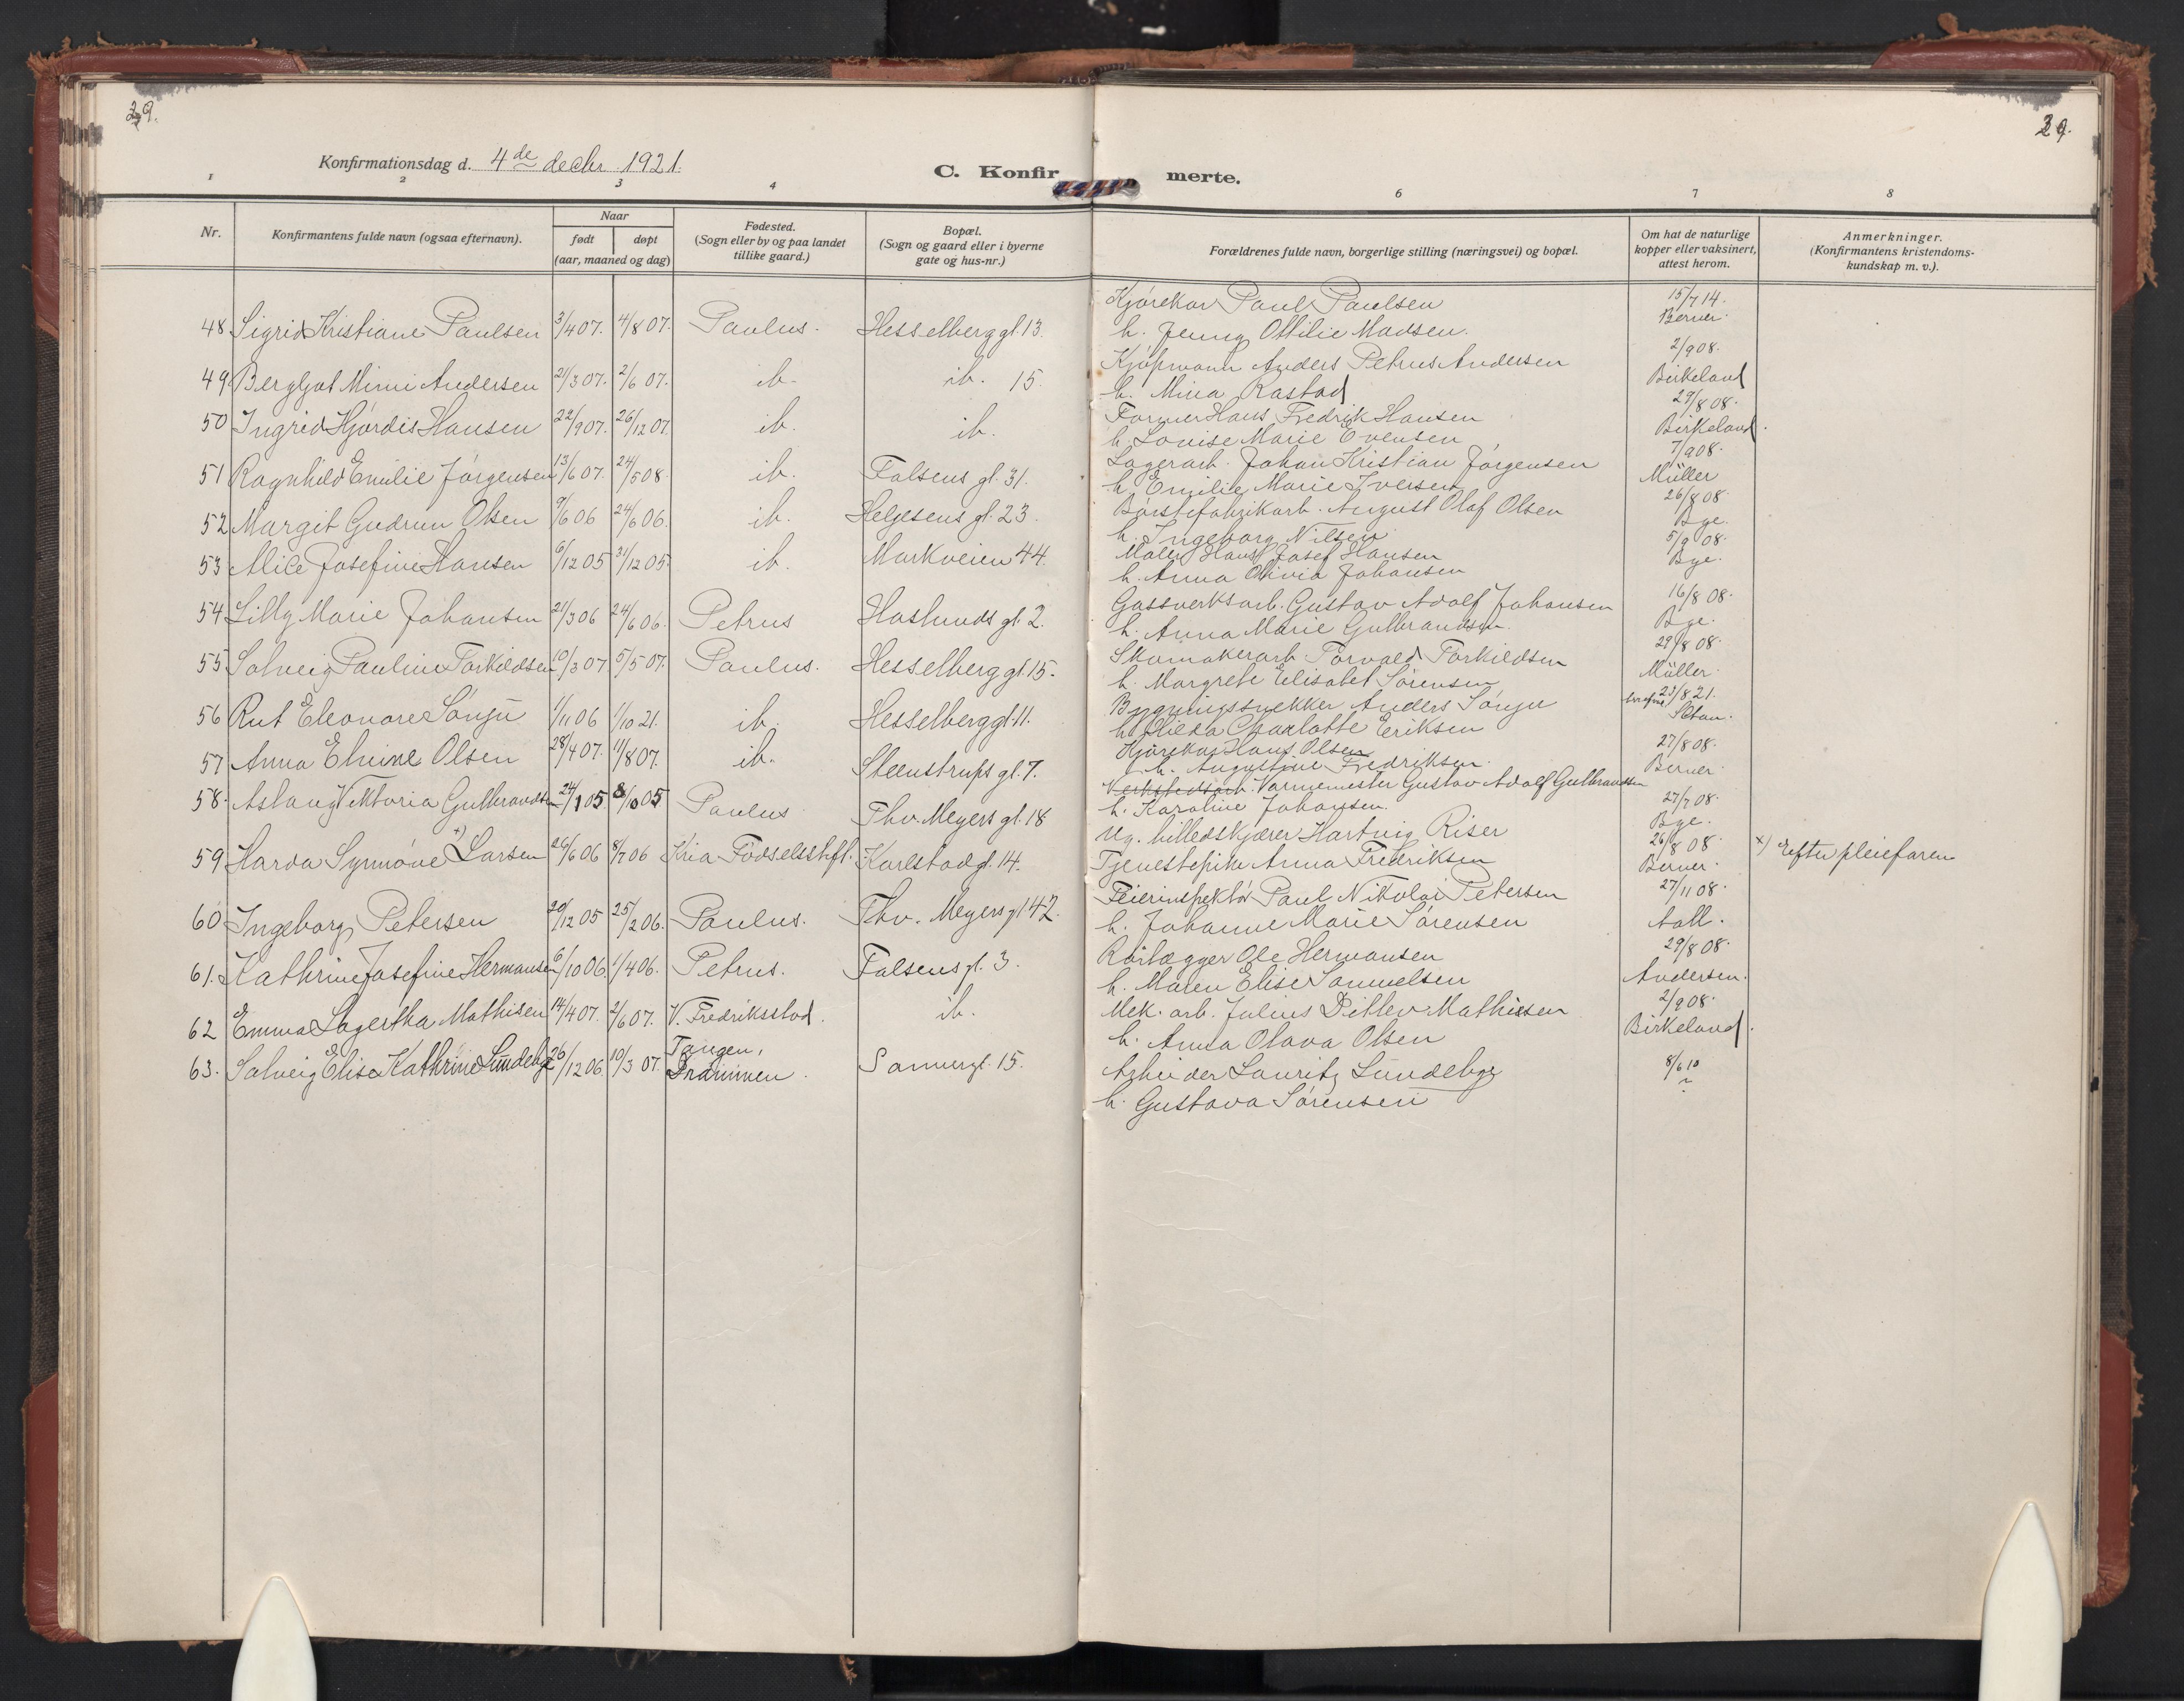 29.
29.
Konfirmationsdag d. 4de decbr. 1921.
C. Konfirmerte.
1 2 3 4 6 7 8
Nr.
Konfirmantens fulde navn (ogsaa efternavn).
Naar
født døpt
(aar, maaned og dag)
Fødested.
(Sogn eller by og paa landet
tillike gaard.)
Bopæl.
(Sogn og gaard eller i byerne
gate og hus-nr.)
Forældrenes fulde navn, borgerlige stilling (næringsvei) og bopæl.
Om hat de naturlige
kopper eller vaksinert,
attest herom.
Anmerkninger.
(Konfirmantens kristendoms-
kundskap m. v.).
48 Sigrid Kristiane Paulsen 3/4 07. 4/8 07. Paulus. Hesselberg gt. 13. Kjørekar Paul Paulsen 15/7 14.
h. Jenny Ottilie Madsen. Berner.
49 Bergljot Mimi Andersen 21/3 07. 2/6 07. ib. ib. 15. Kjøpmann Anders Petrus Andersen 2/9 08.
h. Mina Rastad Birkeland
50 Ingrid Hjørdis Hansen 22/9 07. 26/12 07. ib. ib. Former Hans Fredrik Hansen 29/8 08.
h. Lovise Marie Evensen Birkeland.
51 Ragnhild Emilie Jørgensen 13/6 07. 24/5 08. ib. Falsens gt. 31. Lagerarb. Johan Kristian Jørgensen 7/9 08.
h. Emilie Marie Iversen Müller
52 Margit Gudrun Olsen 9/6 06 24/6 06. ib. Helgesens gt. 23. Børstefabrikarb. August Olaf Olsen 26/8 08.
h. Ingeborg Nilsen Bye.
53 Alice Josefine Hansen 6/12 05 31/12 05. ib. Markveien 44. Maler Hans Josef Hansen 5/9 08.
h. Anna Olivia Johansen Bye.
54 Lilly Marie Johansen 21/3 06 24/6 06. Petrus Haslunds gt. 2. Gassverksarb. Gustav Adolf Johansen 16/8 08.
h. Anna Marie Gulbrandsen. Bye.
55 Solveig Pauline Torkildsen 10/3 07 5/5 07. Paulus. Hesselberg gt. 15. Skomakerarb. Torvald Torkildsen 29/8 08.
h. Margrete Elisabet Sørensen Müller.
56 Rut Eleonore Sønju 1/11 06 1/10 21. ib. Hesselberg gt. 11. Bygningssnekker Anders Sønju 23/8 21.
h. Hilda Charlotte Eriksen
57 Anna Elvine Olsen 28/4 07. 11/8 07. ib. Steenstrups gt. 7. Kjørekar Hans Olsen 27/8 08.
h. Augustine Fredriksen. Berner.
58. Aslaug Viktoria Gulbrandsen 24/1 05 8/10 05 Paulus Thv. Meyers gt. 18 Verkstedsarb. Varmemester Gustav Adolf Gulbrandsen 27/7 08.
h. Karoline Johansen. Bye.
59 Harda Synnøve x) Larsen 29/6 06 8/7 06 Kria Fødselsstift. Karlstad gt. 14. Ug. billedskjærer Hartvig Riser 26/8 08. x) Efter pleiefaren
Tjenestepike Anna Fredriksen Berner.
60 Ingeborg Petersen 20/12 05 25/2 06. Paulus. Thv. Meyers gt 42. Feierinspektør Paul Nikolai Petersen 27/11 08.
h. Johanne Marie Sørensen Aall.
61. Kathrine Josefine Hermansen 6/10 06. 1/4 06. Petrus. Falsens gt. 3. Rørlægger Ole Hermansen 29/8 08.
h. Maren Elise Samuelsen Andersen.
62 Emma Lagertha Mathisen 14/4 07. 2/6 07. V. Fredrikstad. ib. Mek. arb. Julius Ditlev Mathisen 2/9 08.
h. Anna Olava Olsen Birkeland.
63. Solveig Elise Kathrine Lundeby 26/12 06 10/3 07. Tangen, Drammen. Sannergt. 15. Arbeider Lauritz Lundeby 8/6 10
h. Gustava Sørensen